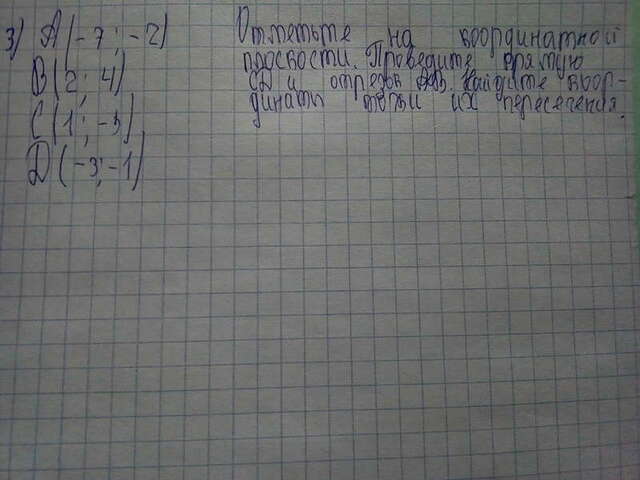 3) A(-7; -2) Отметьте на координатной
плоскости. Проведите прямую
B(2; 4) CD и отрезок AB. Найдите коор-
динаты точки их пересечения.
C(1; -3)
D(-3; -1)